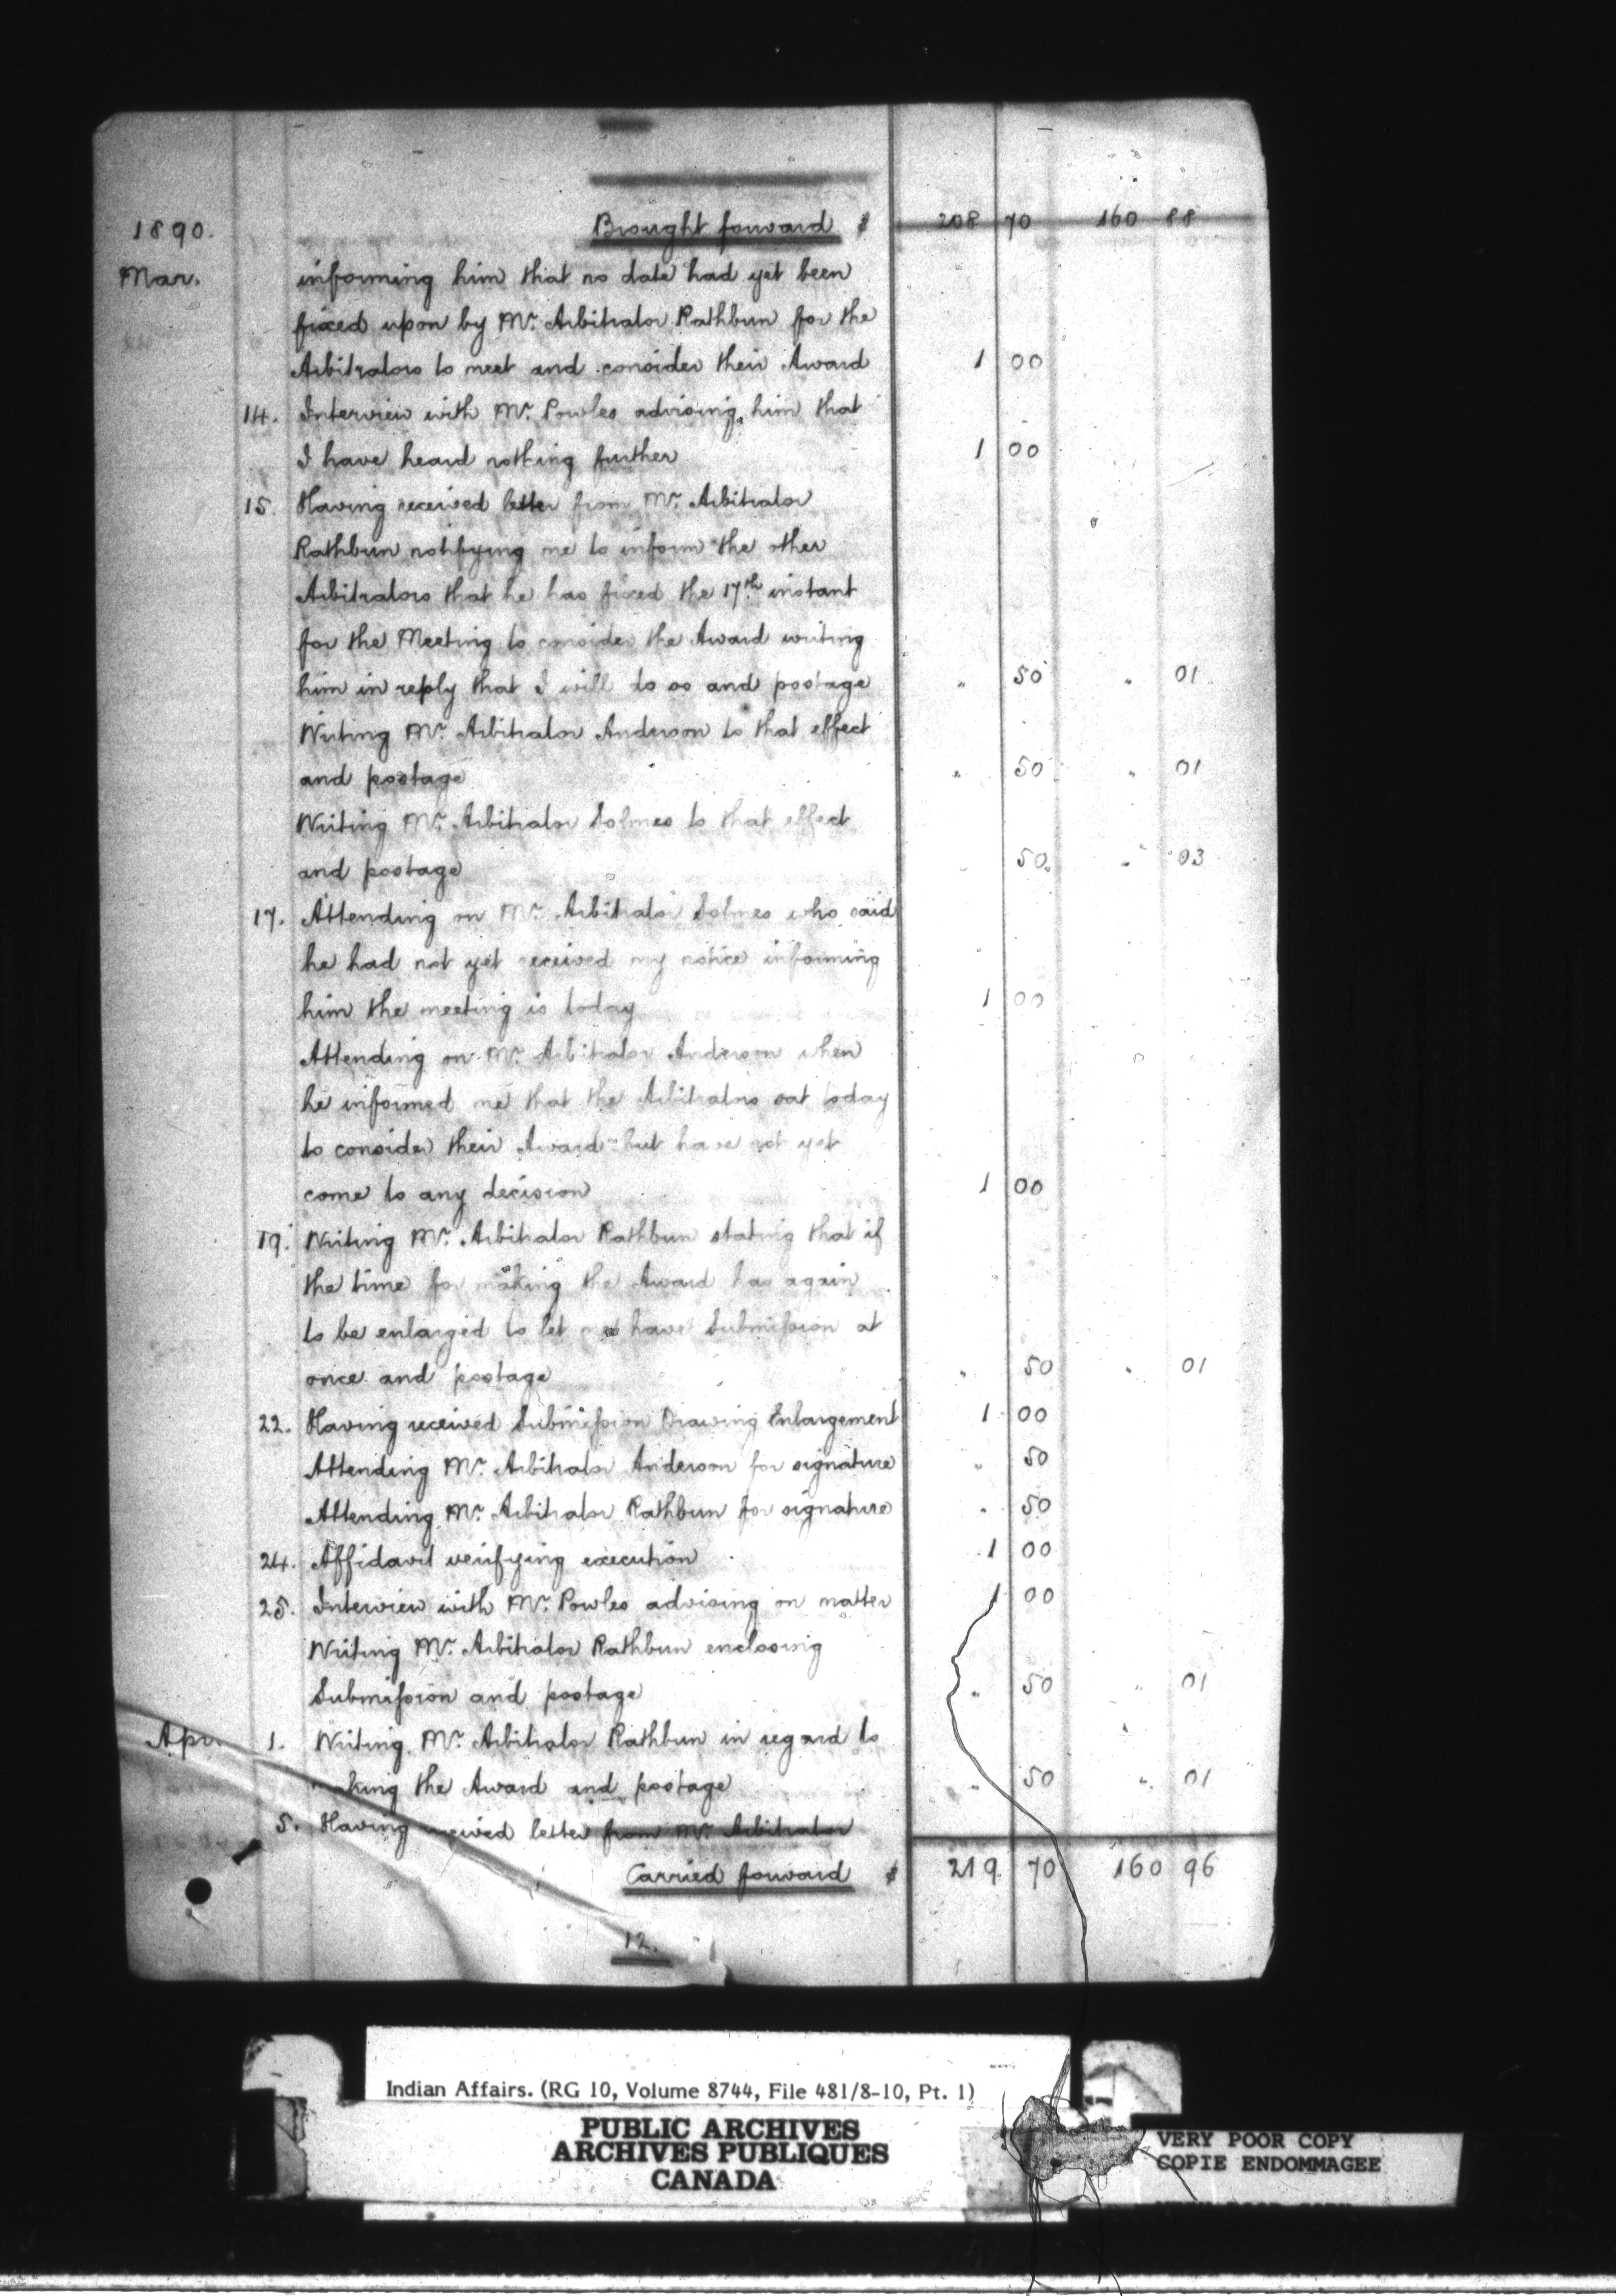 1890. Brought forward $ 208 70 160 88
Mar. informing him that no date had yet been
fixed upon by Mr. Arbitrator Rathbun for the
Arbitrators to meet and consider their Award 1 00
14. Interview with Mr. Powles advising him that
I have heard nothing further 1 00
15. Having received letter from Mr. Arbitrator
Rathbun notifying me to inform the other
Arbitrators that he has fixed the 17th instant
for the Meeting to consider the Award writing
him in reply that I will do so and postage " 50 " 01
Writing Mr. Arbitrator Anderson to that effect
and postage " 50 " 01
Writing Mr. Arbitrator Solmes to that effect
and postage " 50 " 03
17. Attending on Mr. Arbitrator Solmes who said
he had not yet received my notice informing
him the meeting is today 1 00
Attending on Mr. Arbitrator Anderson when
he informed me that the Arbitrators sat today
to consider their Award but have not yet
come to any decision 1 00
19. Writing Mr. Arbitrator Rathbun stating that if
the time for making the Award has again
to be enlarged to let me have Submission at
once and postage " 50 " 01
22. Having received Submission Drawing Enlargement 1 00
Attending Mr. Arbitrator Anderson for signature " 50
Attending Mr. Arbitrator Rathbun for signature " 50
24. Affidavit verifying execution 1 00
25. Interview with Mr. Powles advising on matter 1 00
Writing Mr. Arbitrator Rathbun enclosing
Submission and postage " 50 " 01
Apr. 1. Writing Mr. Arbitrator Rathbun in regard to
making the Award and postage " 50 " 01
5. Having received letter from Mr. Arbitrator
Carried forward $ 219 70 160 96
12.
Indian Affairs. (RG 10, Volume 8744, File 481/8-10, Pt. 1)
PUBLIC ARCHIVES
ARCHIVES PUBLIQUES
CANADA
VERY POOR COPY
COPIE ENDOMMAGEE